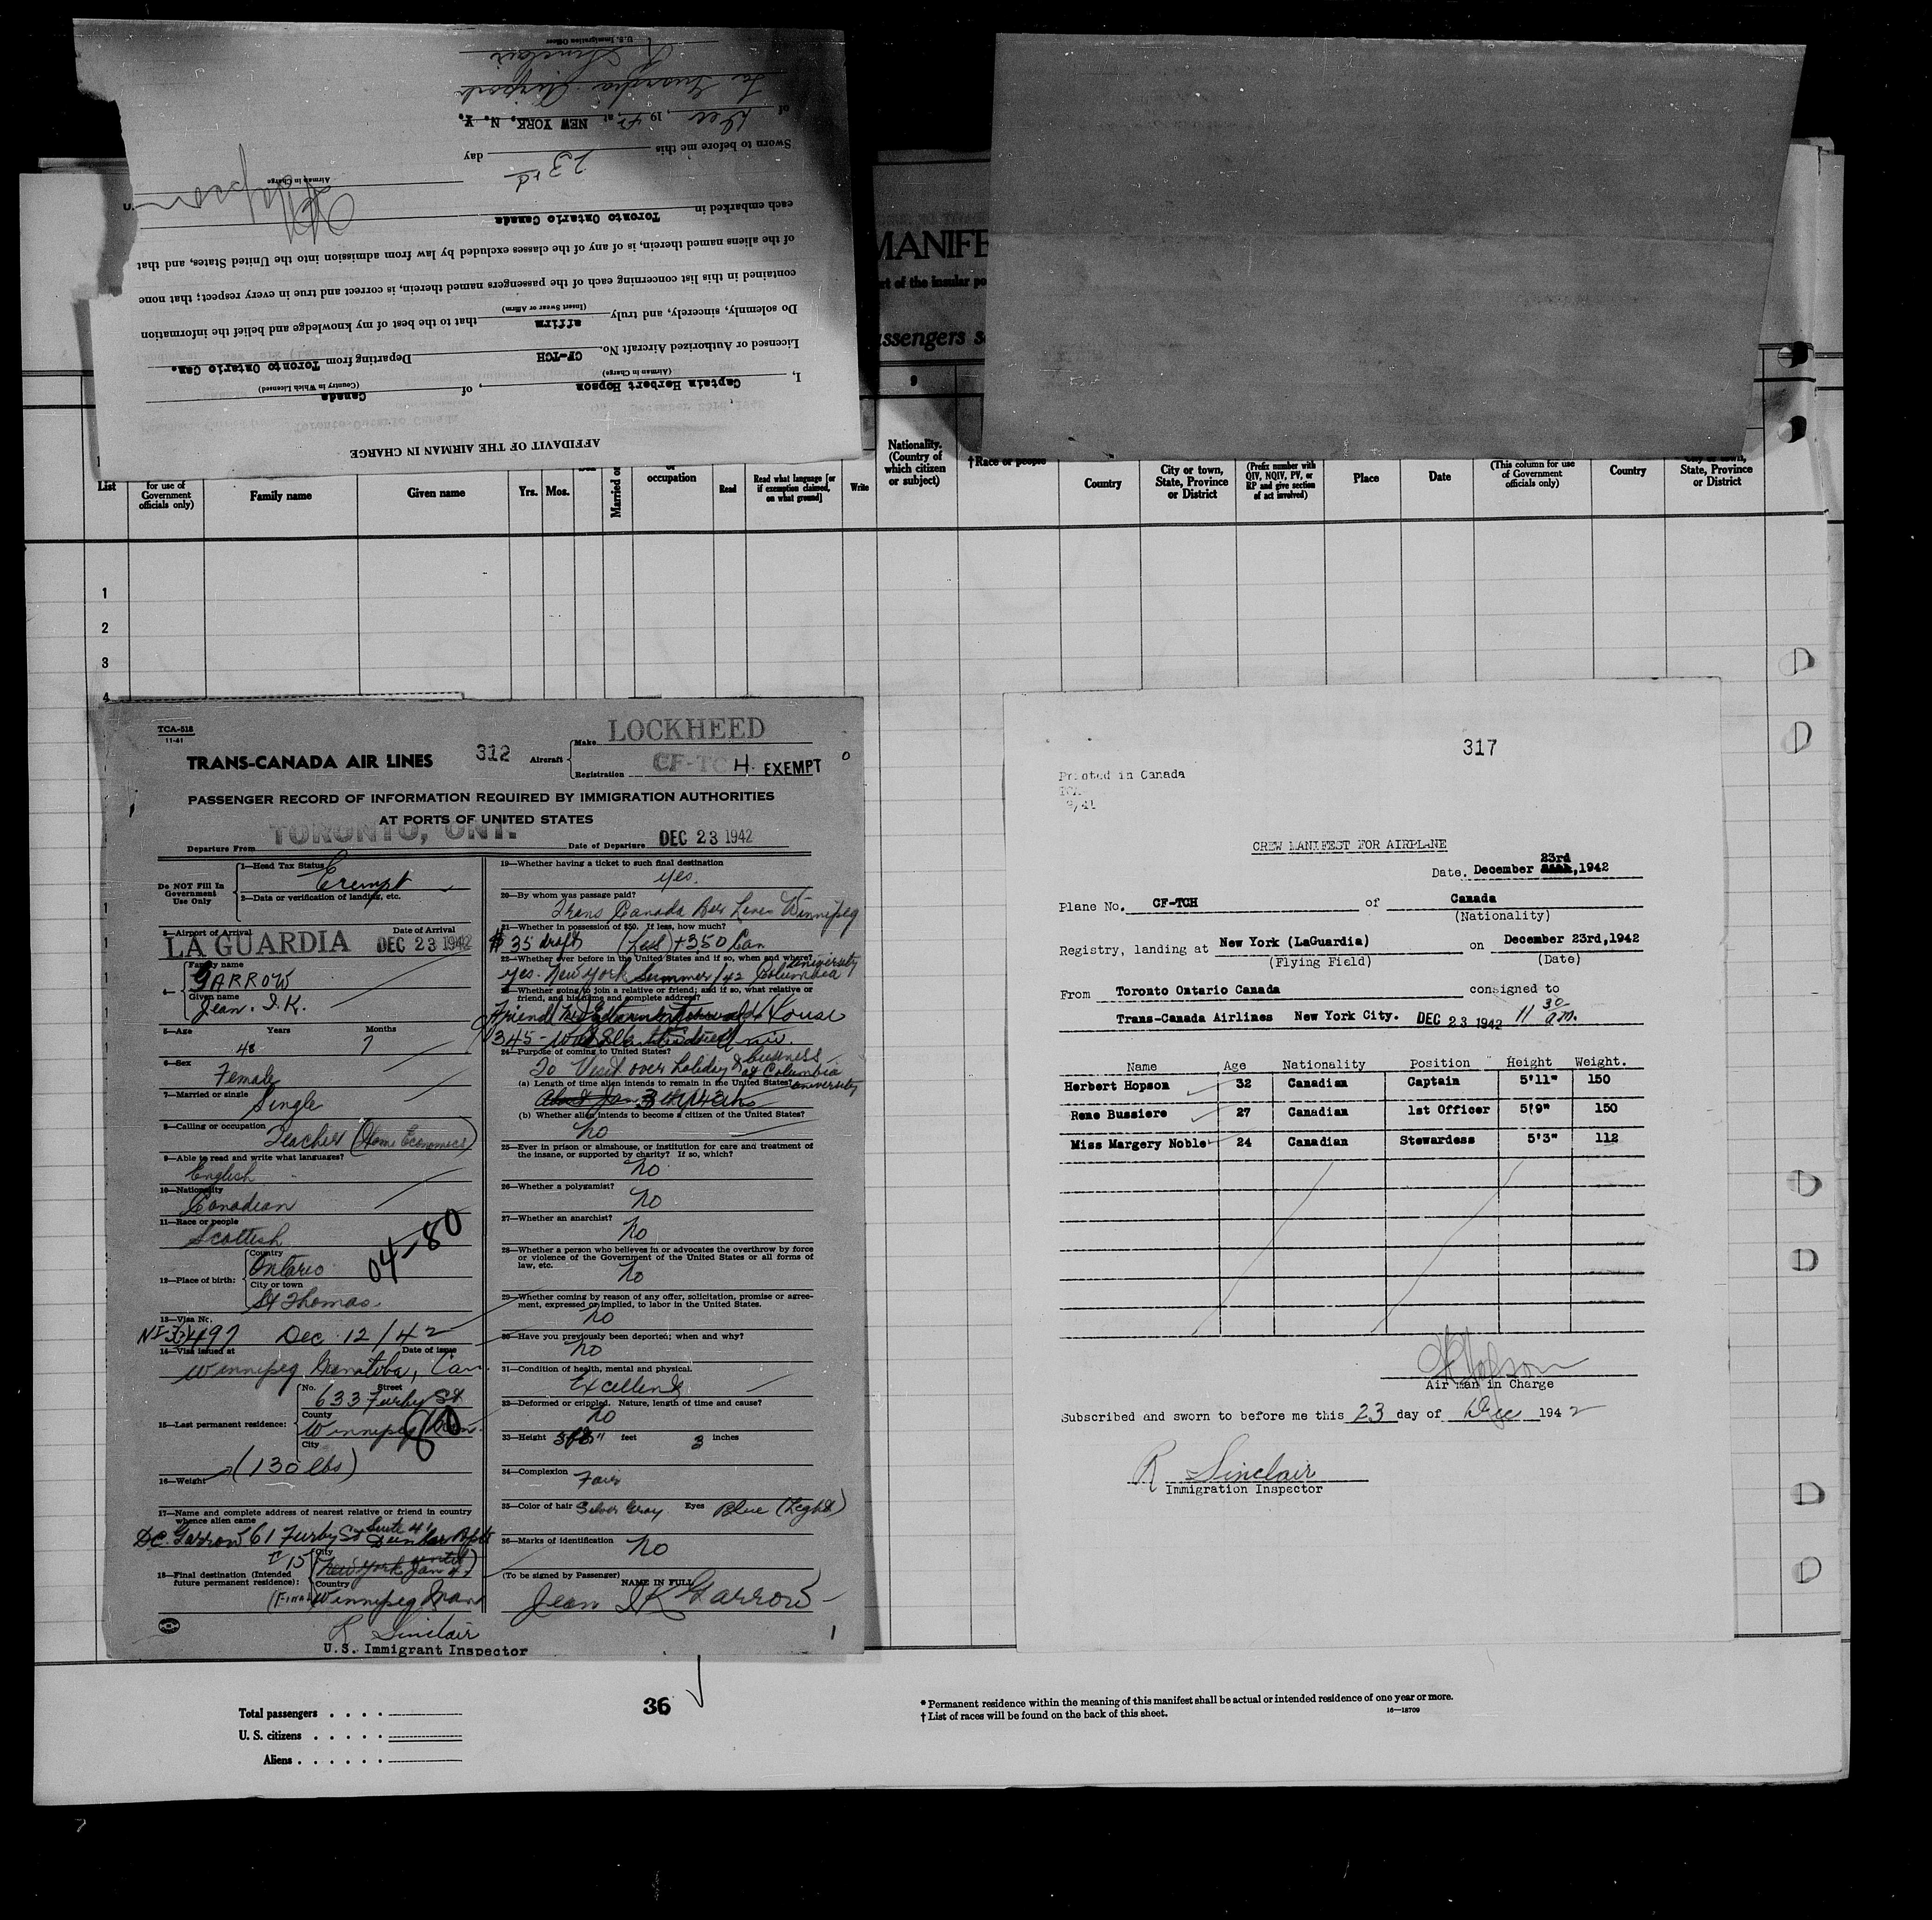 AFFIDAVIT OF THE AIRMAN IN CHARGE
I, Captain Herbert Hopson, of Canada
(Airman in Charge) (Country in Which Licensed)
Licensed or Authorized Aircraft No. CF-TCH Departing from Toronto Ontario Can.
Do solemnly, sincerely, and truly affirm that to the best of my knowledge and belief the information
(Insert Swear or Affirm)
contained in this list concerning each of the passengers named therein, is correct and true in every respect; that none
of the aliens named therein, is of any of the classes excluded by law from admission into the United States, and that
each embarked in Toronto Ontario Canada
H Hopson
Airman in Charge
Sworn to before me this 23rd day
of Dec, 1942, at NEW YORK, N. Y.
La Guardia Airport
R Sinclair
U.S. Immigration Officer
MANIFE
rt of the insular po
assengers s
9
List
for use of
Government
officials only)
Family name
Given name
Yrs. Mos.
Married or
or
occupation
Read
Read what language [or
if exemption claimed,
on what ground]
Write
Nationality.
(Country of
which citizen
or subject)
†Race or people
Country
City or town,
State, Province
or District
(Prefix number with
QIV, NQIV, PV, or
RP and give section
of act involved)
Place
Date
(This column for use
of Government
officials only)
Country
City or town,
State, Province
or District
1
2
3
4
TCA-518
11-41
TRANS-CANADA AIR LINES 312 Aircraft Make LOCKHEED
Registration CF-TCH. EXEMPT 0
PASSENGER RECORD OF INFORMATION REQUIRED BY IMMIGRATION AUTHORITIES
AT PORTS OF UNITED STATES
Departure From TORONTO, ONT. Date of Departure DEC 23 1942
Do NOT Fill In
Government
Use Only
1—Head Tax Status
Exempt
2—Data or verification of landing, etc.
3—Airport of Arrival Date of Arrival
LA GUARDIA DEC 23 1942
4— Family name
GARROW
Given name
Jean. I. K.
5—Age Years Months
48 7
6—Sex
Female
7—Married or single
Single
8—Calling or occupation
Teacher (Home Economics)
9—Able to read and write what languages?
English
10—Nationality
Canadian
11—Race or people
Scottish
04-80
12—Place of birth: Country
Ontario
City or town
St Thomas.
13—Visa No.
497 Dec 12/42
14—Visa issued at Date of issue
Winnipeg Manitoba, Can.
15—Last permanent residence: No. Street
633 Furby St
County
Winnipeg Man.
City
80
16—Weight (130 lbs)
17—Name and complete address of nearest relative or friend in country
whence alien came
D.C. Garrow 61 Furby St Suite 41 Dunbar Apts
18—Final destination (Intended
future permanent residence):
City
New York until Jan
Country
(Final) Winnipeg Man
R Sinclair
U.S. Immigrant Inspector
19—Whether having a ticket to such final destination
yes.
20—By whom was passage paid?
Trans Canada Air Lines Winnipeg
21—Whether in possession of $50. If less, how much?
$35 draft + 350 Can
22—Whether ever before in the United States and if so, when and where?
yes. New York Summer/42 Columbia University
23—Whether going to join a relative or friend; and if so, what relative or
friend, and his name and complete address?
Friend House
345-
24—Purpose of coming to United States?
To Visit over holiday & business at Columbia University
(a) Length of time alien intends to remain in the United States?
(b) Whether alien intends to become a citizen of the United States?
no
25—Ever in prison or almshouse, or institution for care and treatment of
the insane, or supported by charity? If so, which?
no
26—Whether a polygamist?
no
27—Whether an anarchist?
no
28—Whether a person who believes in or advocates the overthrow by force
or violence of the Government of the United States or all forms of
law, etc.
no
29—Whether coming by reason of any offer, solicitation, promise or agree-
ment, expressed or implied, to labor in the United States.
no
30—Have you previously been deported; when and why?
no
31—Condition of health, mental and physical.
Excellent
32—Deformed or crippled. Nature, length of time and cause?
no
33—Height feet 3 inches
34—Complexion Fair
35—Color of hair Silver Gray Eyes Blue (Light)
36—Marks of identification no
(To be signed by Passenger) NAME IN FULL
Jean I K Garrow
1
317
Printed in Canada
TCA
9/41
CREW MANIFEST FOR AIRPLANE
Date. December 23rd, 1942
Plane No. CF-TCH of Canada
(Nationality)
Registry, landing at New York (LaGuardia) on December 23rd, 1942
(Flying Field) (Date)
From Toronto Ontario Canada consigned to
Trans-Canada Airlines New York City. DEC 23 1942 11 30 am.
Name Age Nationality Position Height Weight.
Herbert Hopson 32 Canadian Captain 5'11" 150
Rene Bussiere 27 Canadian 1st Officer 5'9" 150
Miss Margery Noble 24 Canadian Stewardess 5'3" 112
H Hopson
Air man in Charge
Subscribed and sworn to before me this 23 day of Dec 1942
R Sinclair
Immigration Inspector
Total passengers
U.S. citizens
Aliens
36
* Permanent residence within the meaning of this manifest shall be actual or intended residence of one year or more.
† List of races will be found on the back of this sheet.
16—18709